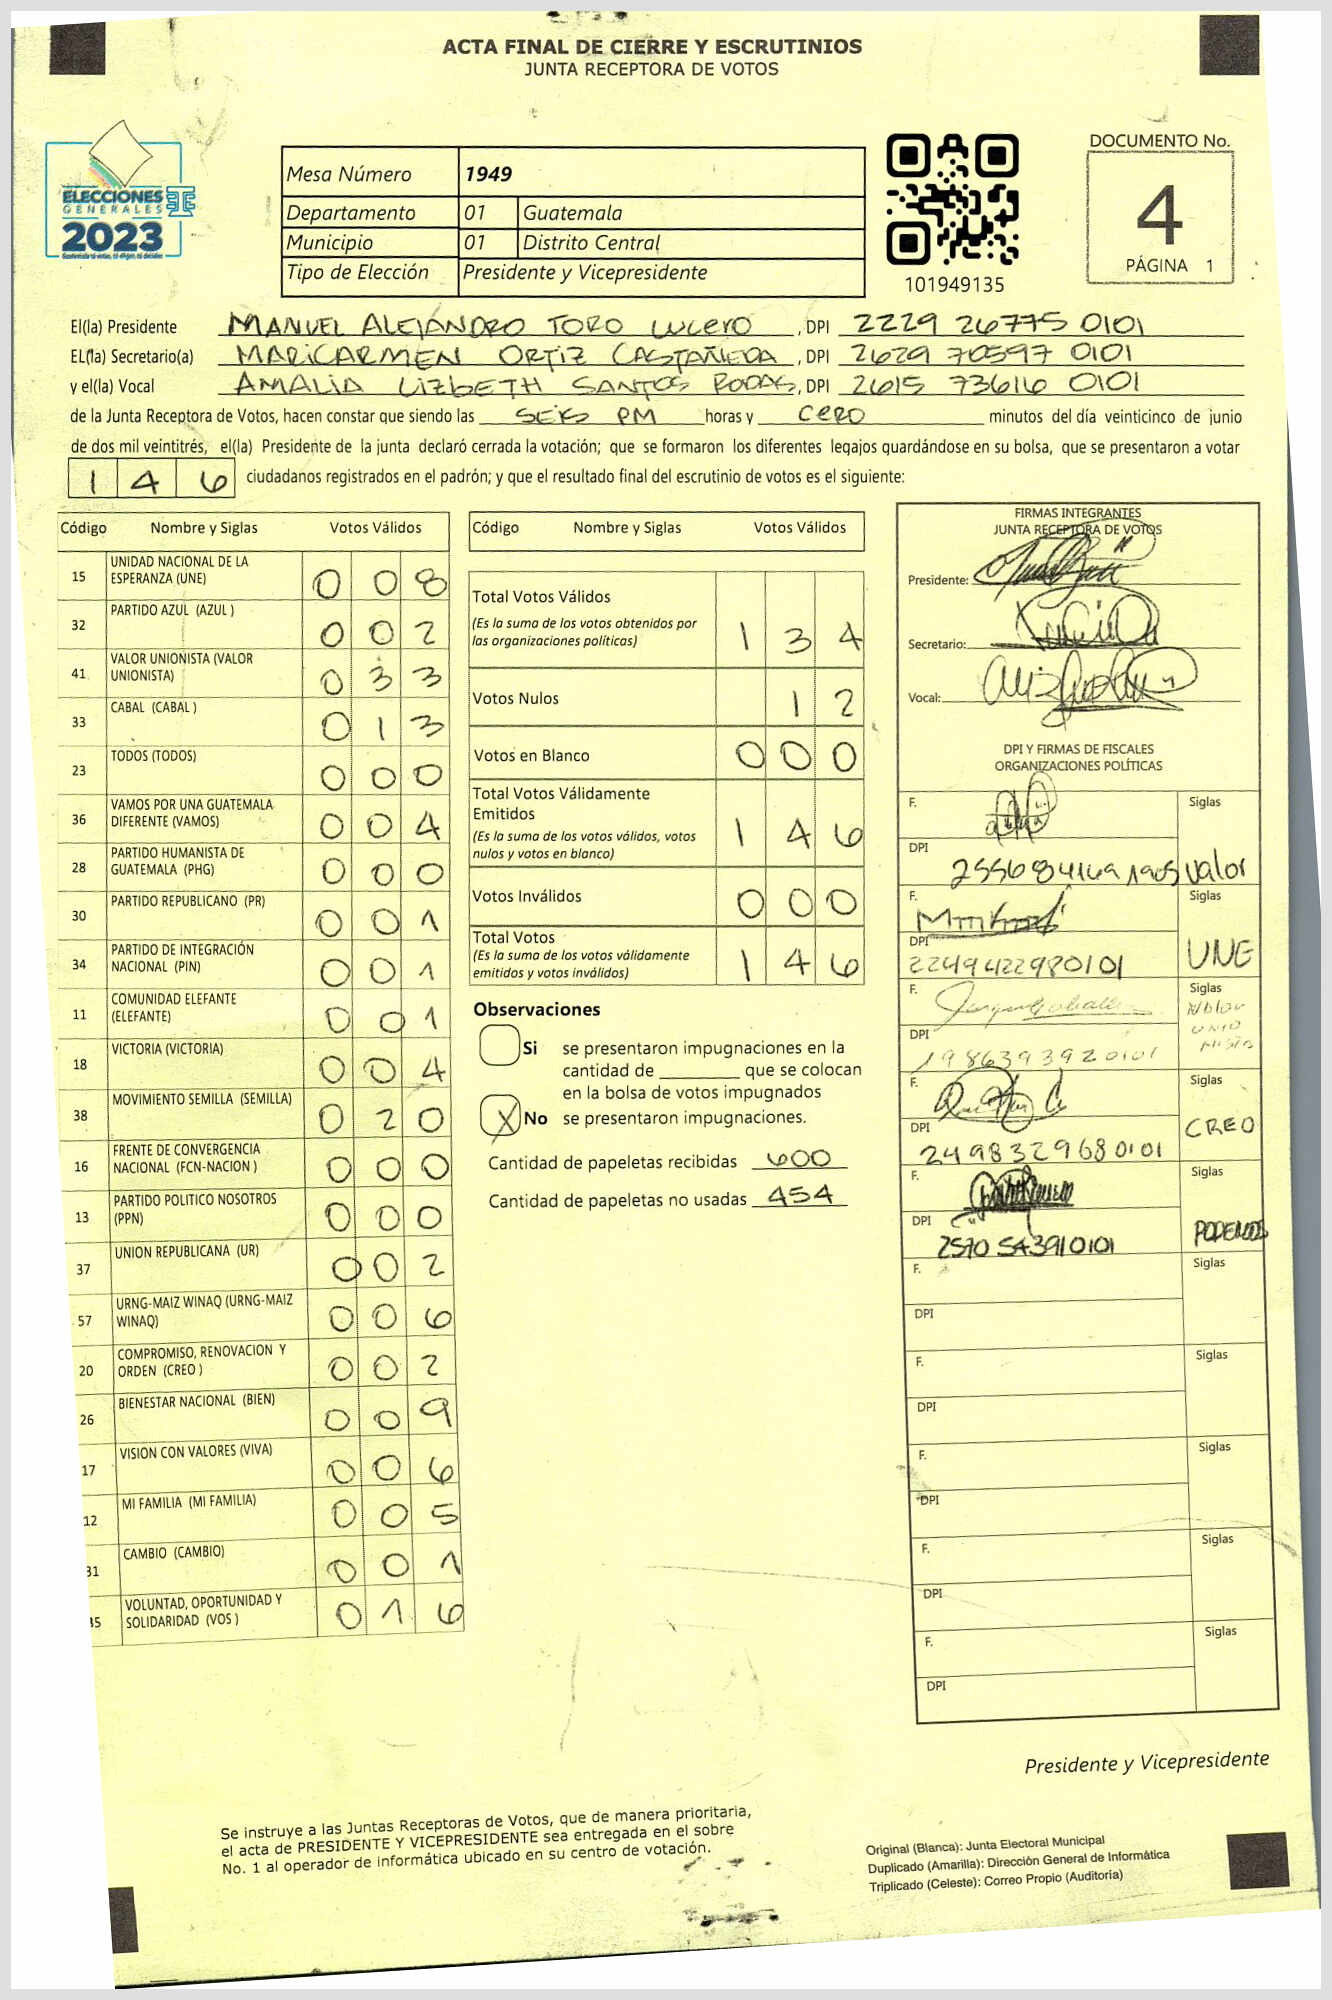 ACTA FINAL DE CIERRE Y ESCRUTINIOS
JUNTA RECEPTORA DE VOTOS
ELECCIONES
GENERALES
2023
Mesa Número 1949
Departamento 01 Guatemala
Municipio 01 Distrito Central
Tipo de Elección Presidente y Vicepresidente
101949135
DOCUMENTO No.
4
PÁGINA 1
El(la) Presidente MANUEL ALEJANDRO TORO LUCERO, DPI 2229 26775 0101
EL(la) Secretario(a) MARICARMEN ORTIZ CASTAÑEDA, DPI 2629 70597 0101
y el(la) Vocal AMALIA LIZBETH SANTOS RODAS, DPI 2615 73616 0101
de la Junta Receptora de Votos, hacen constar que siendo las SEIS PM horas y CERO minutos del día veinticinco de junio
de dos mil veintitrés, el(la) Presidente de la junta declaró cerrada la votación; que se formaron los diferentes legajos guardándose en su bolsa, que se presentaron a votar
1 4 6 ciudadanos registrados en el padrón; y que el resultado final del escrutinio de votos es el siguiente:
Código Nombre y Siglas Votos Válidos
15 UNIDAD NACIONAL DE LA ESPERANZA (UNE) 0 0 8
32 PARTIDO AZUL (AZUL ) 0 0 2
41 VALOR UNIONISTA (VALOR UNIONISTA) 0 3 3
33 CABAL (CABAL ) 0 1 3
23 TODOS (TODOS) 0 0 0
36 VAMOS POR UNA GUATEMALA DIFERENTE (VAMOS) 0 0 4
28 PARTIDO HUMANISTA DE GUATEMALA (PHG) 0 0 0
30 PARTIDO REPUBLICANO (PR) 0 0 1
34 PARTIDO DE INTEGRACIÓN NACIONAL (PIN) 0 0 1
11 COMUNIDAD ELEFANTE (ELEFANTE) 0 0 1
18 VICTORIA (VICTORIA) 0 0 4
38 MOVIMIENTO SEMILLA (SEMILLA) 0 2 0
16 FRENTE DE CONVERGENCIA NACIONAL (FCN-NACION ) 0 0 0
13 PARTIDO POLITICO NOSOTROS (PPN) 0 0 0
37 UNION REPUBLICANA (UR) 0 0 2
57 URNG-MAIZ WINAQ (URNG-MAIZ WINAQ) 0 0 6
20 COMPROMISO, RENOVACION Y ORDEN (CREO ) 0 0 2
26 BIENESTAR NACIONAL (BIEN) 0 0 9
17 VISION CON VALORES (VIVA) 0 0 6
12 MI FAMILIA (MI FAMILIA) 0 0 5
31 CAMBIO (CAMBIO) 0 0 1
35 VOLUNTAD, OPORTUNIDAD Y SOLIDARIDAD (VOS ) 0 1 6
Código Nombre y Siglas Votos Válidos
Total Votos Válidos 1 3 4
(Es la suma de los votos obtenidos por
las organizaciones políticas)
Votos Nulos 1 2
Votos en Blanco 0 0 0
Total Votos Válidamente
Emitidos 1 4 6
(Es la suma de los votos válidos, votos
nulos y votos en blanco)
Votos Inválidos 0 0 0
Total Votos 1 4 6
(Es la suma de los votos válidamente
emitidos y votos inválidos)
Observaciones
Si se presentaron impugnaciones en la
cantidad de ________ que se colocan
en la bolsa de votos impugnados
X No se presentaron impugnaciones.
Cantidad de papeletas recibidas 600
Cantidad de papeletas no usadas 454
FIRMAS INTEGRANTES
JUNTA RECEPTORA DE VOTOS
Presidente:
Secretario:
Vocal:
DPI Y FIRMAS DE FISCALES
ORGANIZACIONES POLÍTICAS
F. Siglas
DPI 2556 84169 1905 Valor
F. Siglas
DPI 2249422980101 UNE
F. Siglas
DPI 1986393920101
F. Siglas
DPI 2498329680101 CREO
F. Siglas
DPI 2570 543910101 PODEMOS
F. Siglas
DPI
F. Siglas
DPI
F. Siglas
DPI
F. Siglas
DPI
F. Siglas
DPI
Presidente y Vicepresidente
Se instruye a las Juntas Receptoras de Votos, que de manera prioritaria,
el acta de PRESIDENTE Y VICEPRESIDENTE sea entregada en el sobre
No. 1 al operador de informática ubicado en su centro de votación.
Original (Blanca): Junta Electoral Municipal
Duplicado (Amarilla): Dirección General de Informática
Triplicado (Celeste): Correo Propio (Auditoría)